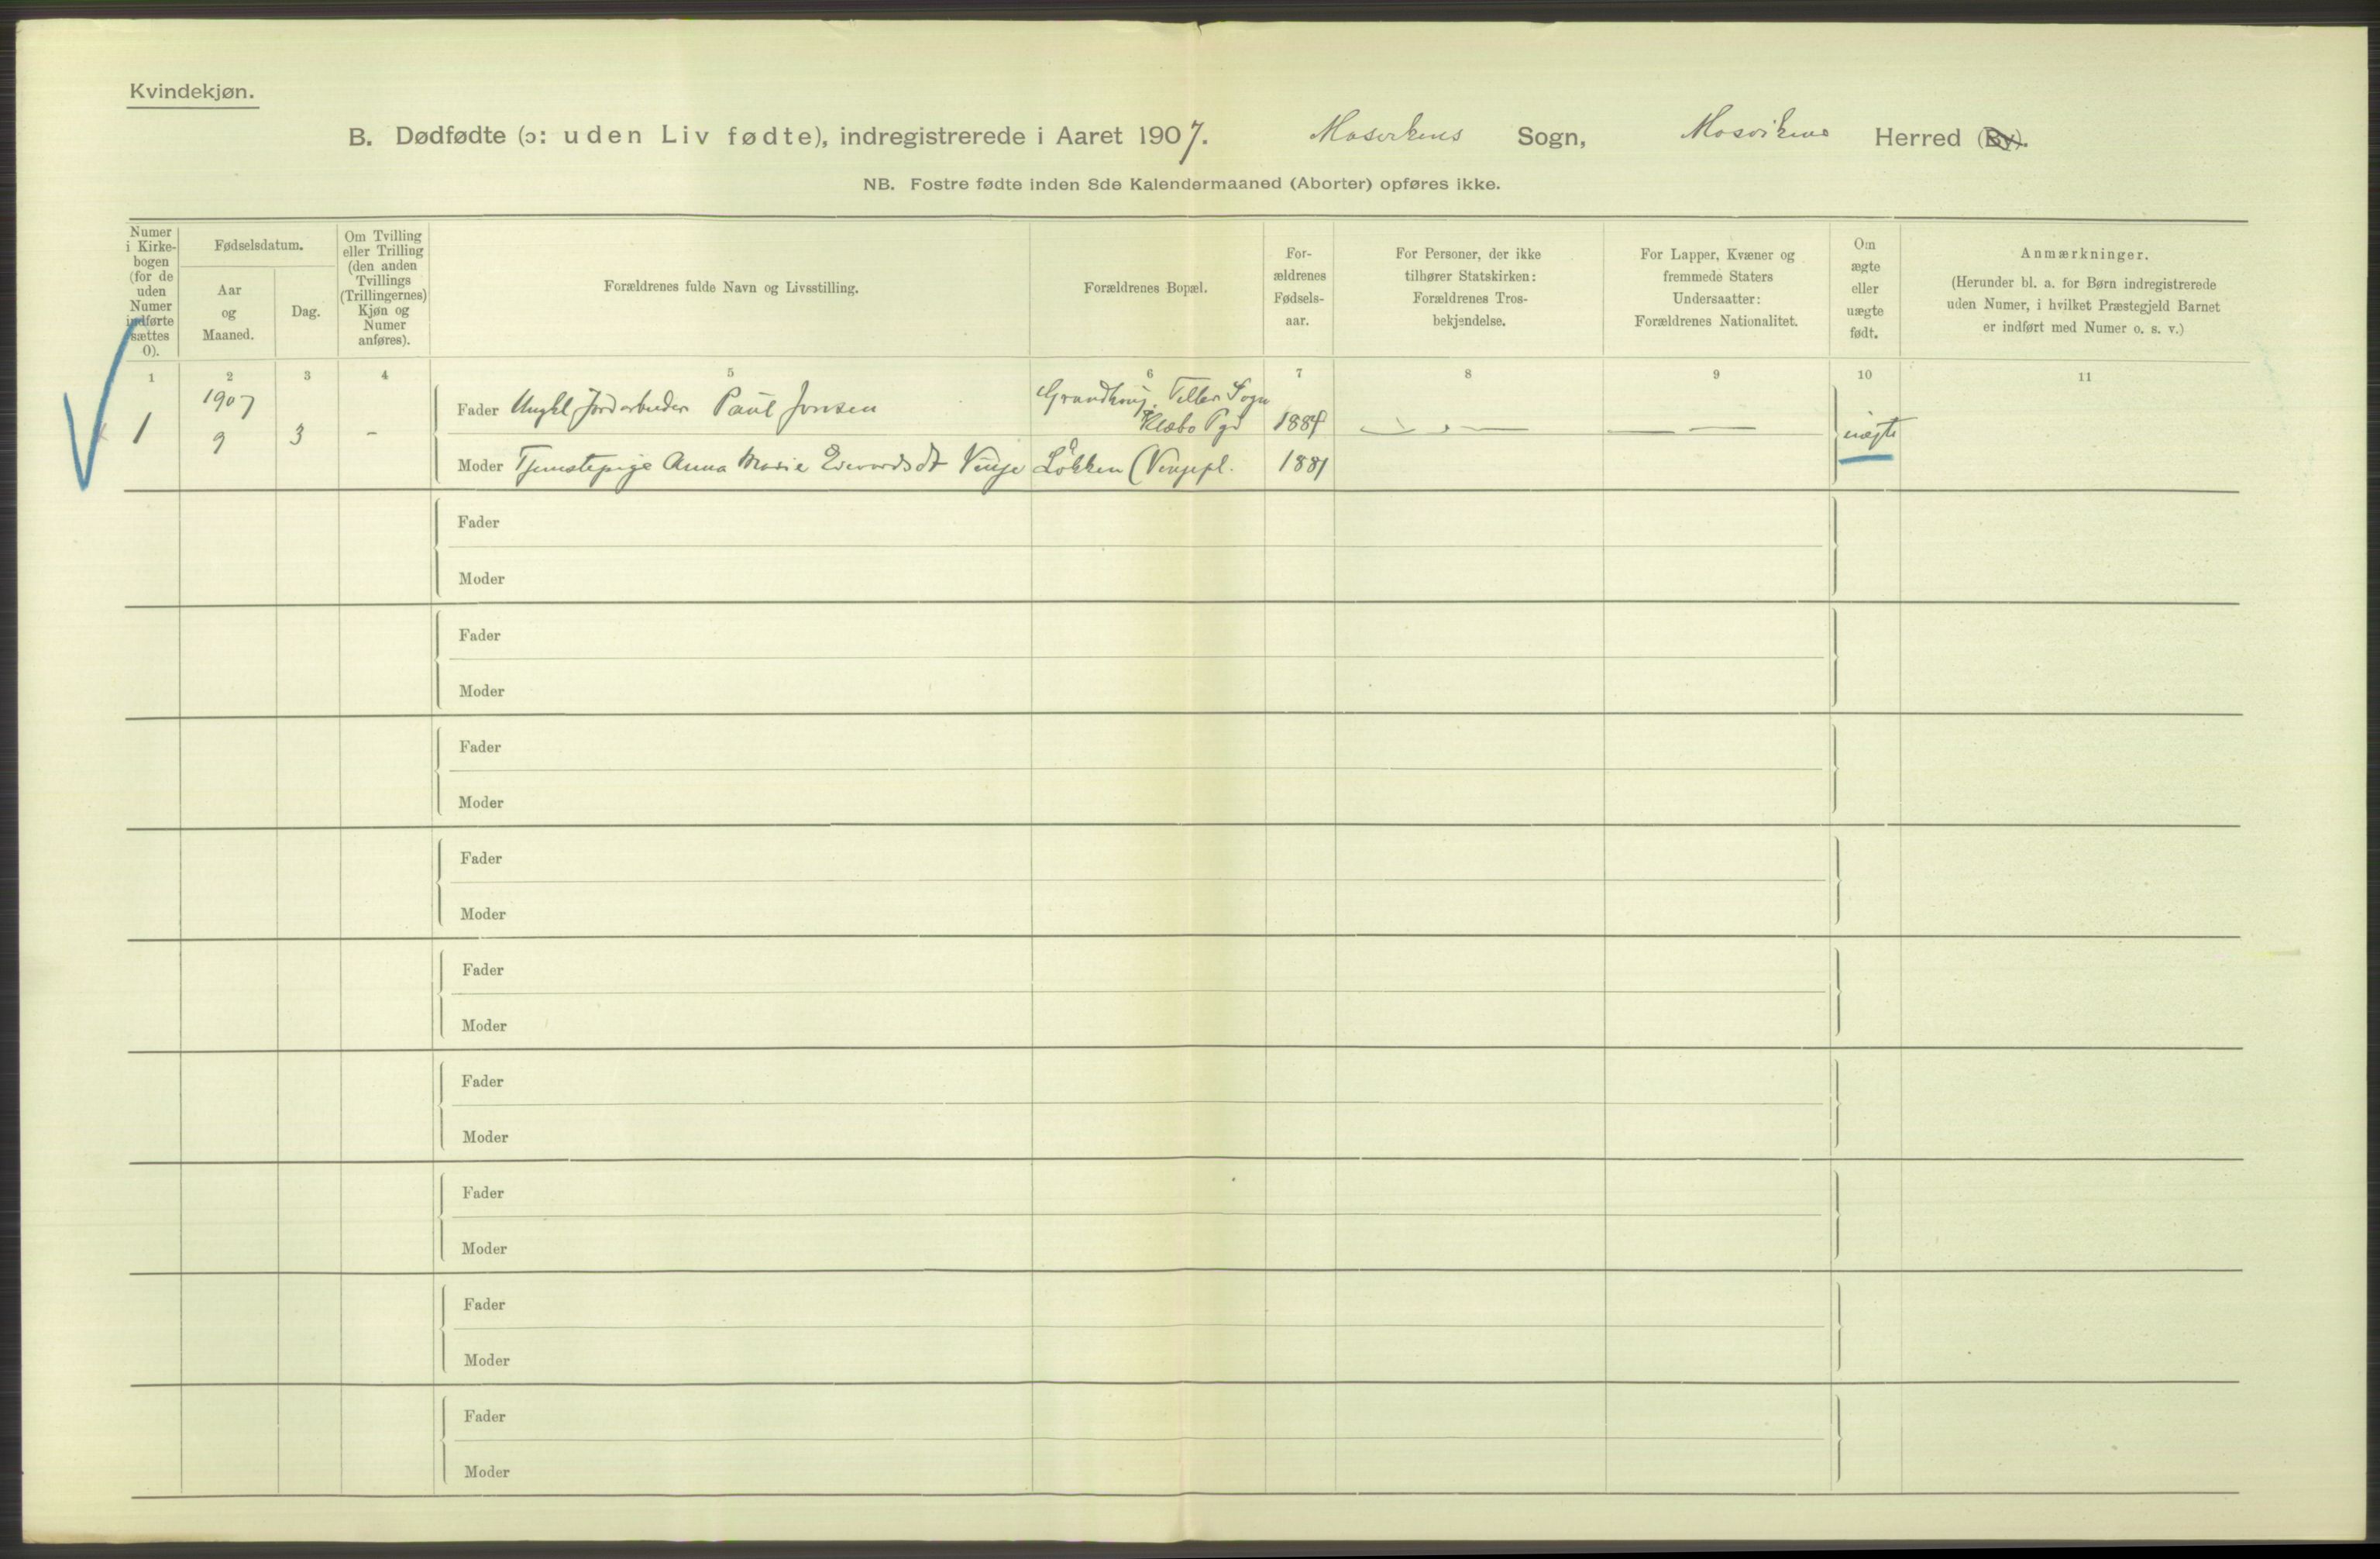 Kvindekjøn.
B. Dødfødte (ɔ: uden Liv fødte), indregistrerede i Aaret 1907. Mosvikens Sogn, Mosvikens Herred (By).
NB. Fostre fødte inden 8de Kalendermaaned (Aborter) opføres ikke.
Numer
i Kirke-
bogen
(for de
uden
Numer
indførte
sættes
0).
Fødselsdatum.
Aar
og
Maaned.
Dag.
Om Tvilling
eller Trilling
(den anden
Tvillings
(Trillingernes)
Kjøn og
Numer
anføres).
Forældrenes fulde Navn og Livsstilling.
Forældrenes Bopæl.
For-
ældrenes
Fødsels-
aar.
For Personer, der ikke
tilhører Statskirken:
Forældrenes Tros-
bekjendelse.
For Lapper, Kvæner og
fremmede Staters
Undersaatter:
Forældrenes Nationalitet.
Om
ægte
eller
uægte
født.
Anmærkninger.
(Herunder bl. a. for Børn indregistrerede
uden Numer, i hvilket Præstegjeld Barnet
er indført med Numer o. s. v.)
1 2 3 4 5 6 7 8 9 10 11
1
1907
9
3
-
Fader Ungkl Jordarbeider Paul Jonsen
Tiller Sogn
Klæbo Pgd
Moder Tjenestepige Anna Marie Edvardsdt Vinje
Løkken (Vinjepl.
1881
uægte
Fader
Moder
Fader
Moder
Fader
Moder
Fader
Moder
Fader
Moder
Fader
Moder
Fader
Moder
Fader
Moder
Fader
Moder